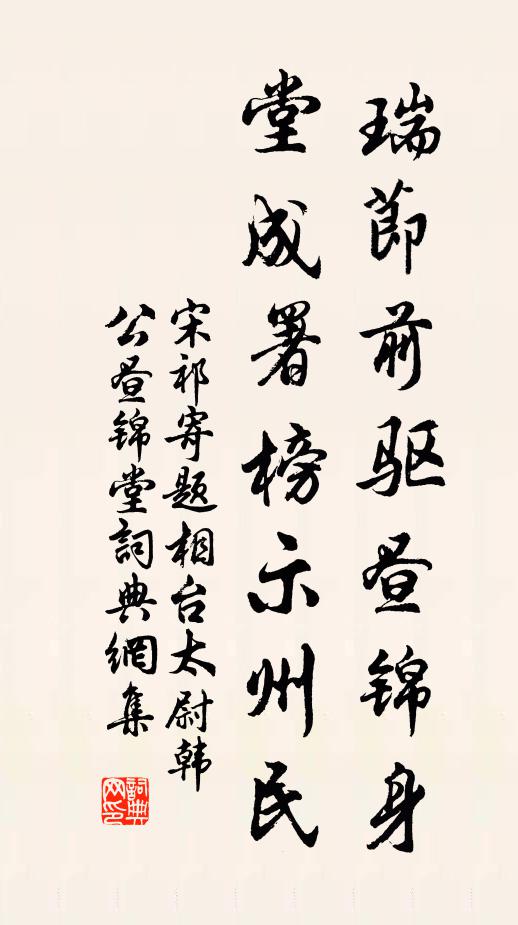 瑞節前驱昼锦身
堂成署榜示州民
宋祁寄題相台太尉韩
公昼锦堂詞典網集
詞典
网印